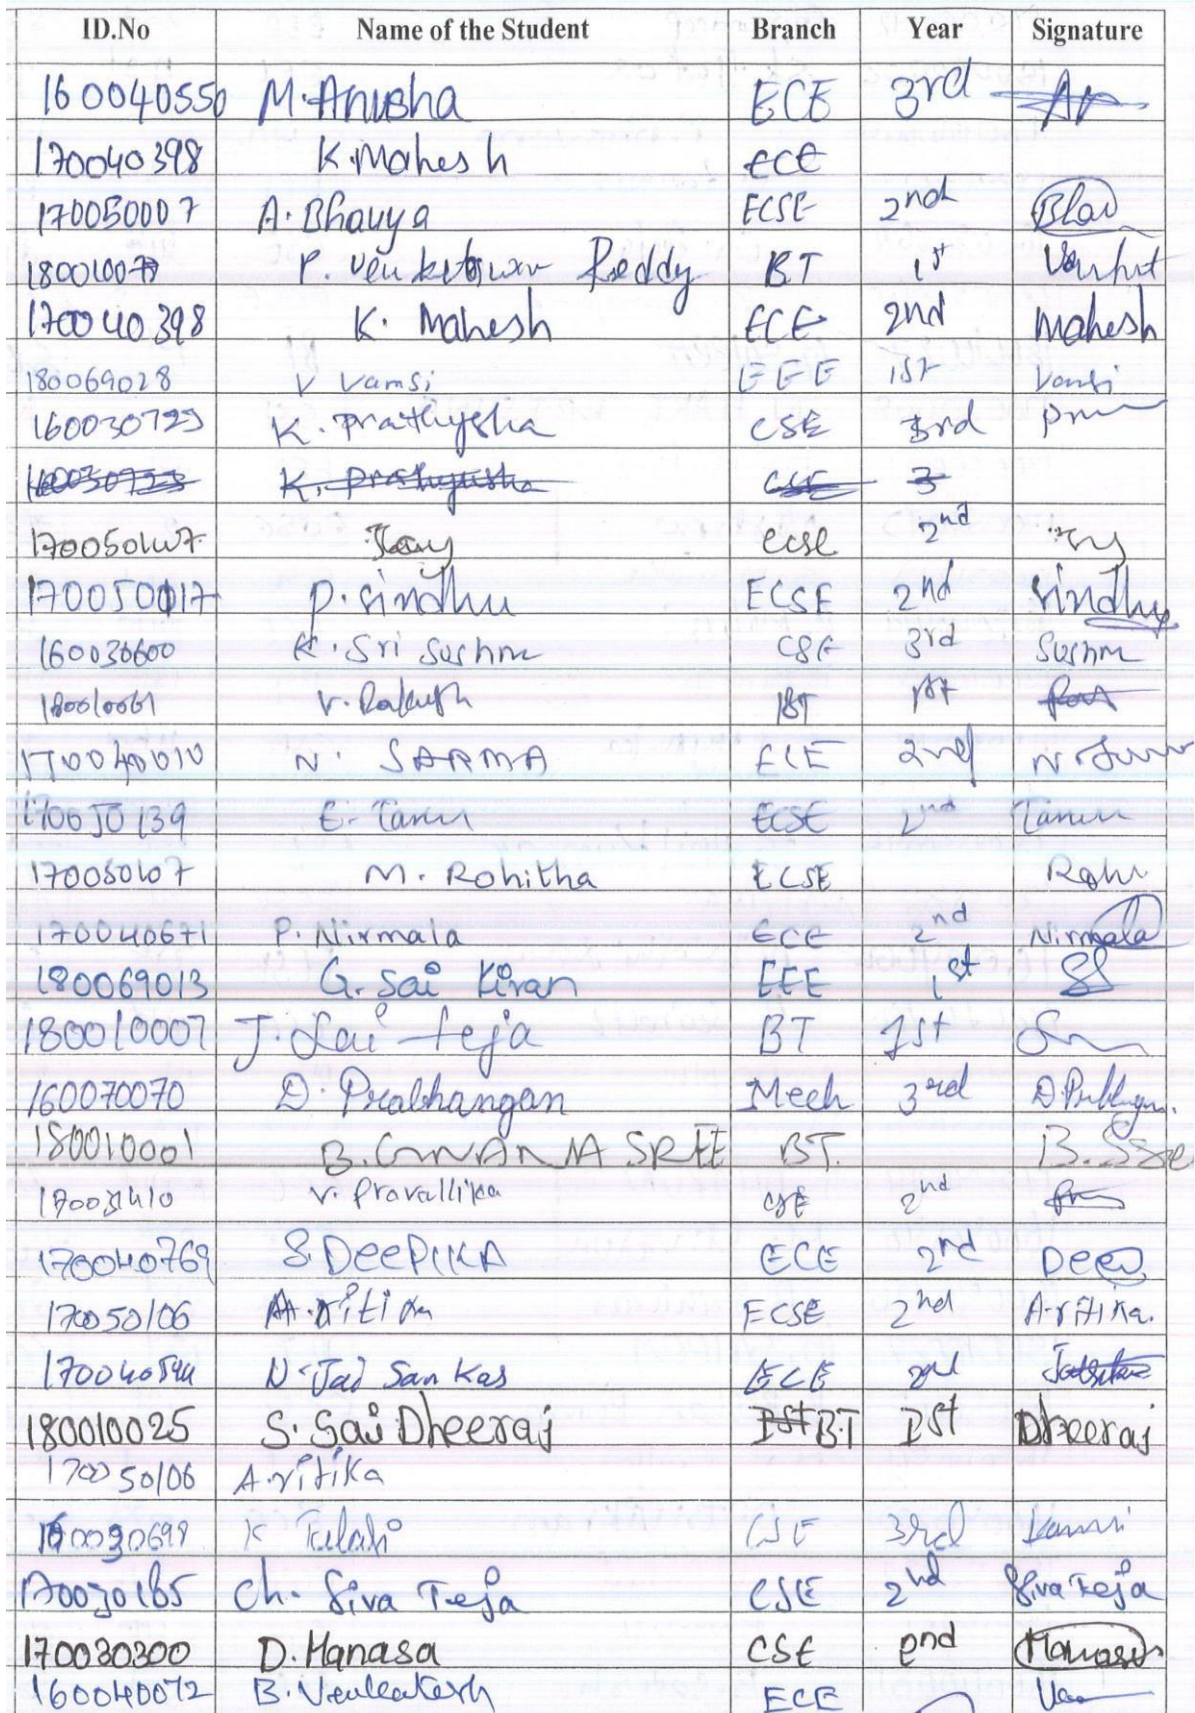 ID.No Name of the Student Branch Year Signature
160040550 M. Anusha ECE 3rd
170040398 K. Mahesh ECE
170050007 A. Bhavya ECSE 2nd
P. Reddy BT 1st
170040398 K. Mahesh ECE 2nd Mahesh
180069028 V Vamsi EEE 1st Vamsi
160030723 K. Prathysha CSE 3rd
160030723 K. Prathyusha CSE 3
ecse 2nd
170050017 P. Sindhu ECSE 2nd Sindhu
160030600 K. Sri Sushma CSE 3rd Sushm
180010061 V. Rakesh BT 1st
170040010 N. SARMA ECE 2nd
170050139 E. Tanu ECSE 2nd
170050107 M. Rohitha ECSE Rohi
170040671 P. Nirmala ECE 2nd Nirmala
180069013 G. Sai Kiran EEE 1st
180010007 J. Sai teja BT 1st
160070070 D. Prabhangan Mech 3rd
180010001 B. GNANA SREE BT.
V. Pravallika CSE 2nd
170040769 S. DeePIKA ECE 2nd Deep
170050106 A. ritika ECSE 2nd A.ritika.
N. Jai San kas ECE 2nd
180010025 S. Sai Dheeraj Ist B.T Ist Dheeraj
170050106 A.ritika
K CSE 3rd
170030165 Ch. Siva Teja CSE 2nd Siva Teja
170030300 D. Manasa CSE 2nd Manasa
160040072 B. Venkatesh ECE